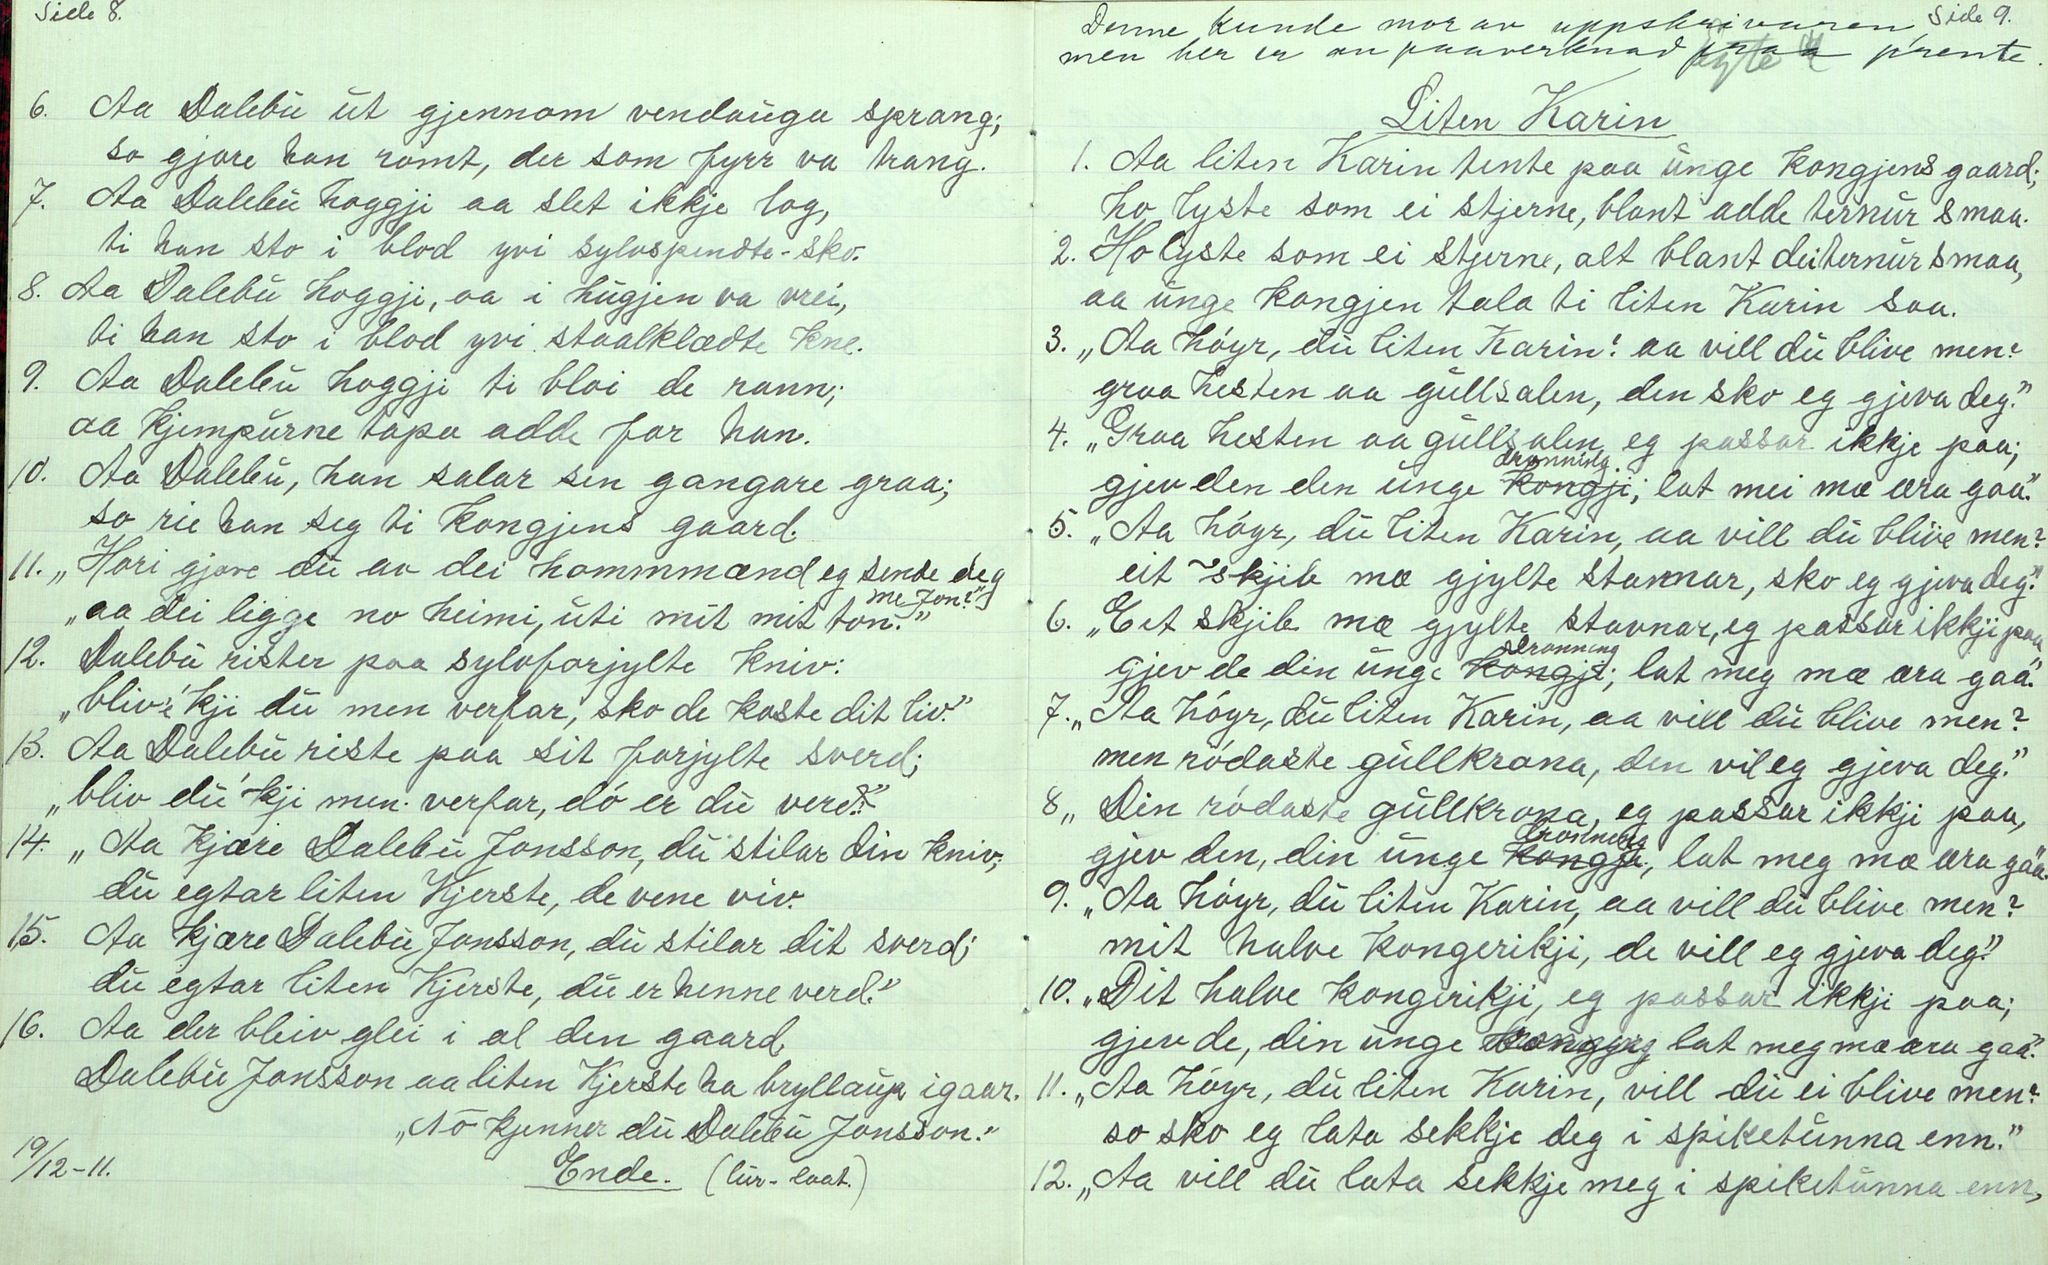 Side 8.
6. Aa Dalebu ut gjennom vendauga sprang;
so gjore han romt, der som fyrr va trang.
7. Aa Dalebu hoggji aa slet ikkje log,
ti han sto i blod yvi sylvspendte-sko.
8. Aa Dalebu hoggji, aa i hugjen va vrei,
ti han sto i blod yvi staalklædte kne.
9. Aa Dalebu hoggji ti bloi de rann;
aa kjempurne tapa adde for han.
10. Aa Dalebu, han salar sen gangare graa;
so rie han seg ti kongjens gaard.
11. „Hori gjore du av dei hommmænd eg sende deg
me Jon?"
„aa dei ligge no heimi, uti mit mit ton."
12. Dalebu rister paa sylvforjylte kniv:
„bliv 'kji du men verfar, sko de koste dit liv."
13. Aa Dalebu riste paa sit forjylte sverd;
„bliv du 'kji men verfar, dó er du verd."
14. „Aa kjære Dalebu Jonsson, du stilar din kniv;
du egtar liten Kjerste, de vene viv.
15. Aa kjære Dalebu Jonsson, du stilar dit sverd;
du egtar liten Kjerste, du er henne verd."
16. Aa der bleiv glei i al den gaard,
Dalebu Jonsson aa liten Kjerste ha bryllaup igaar.
„No kjenner du Dalebu Jonsson."
19/12-11.
Ende. (lur-laat.)
Side 9.
Denne kunde mor av uppskrivaren,
men her er on paaverknad fraa prente.
Liten Karin
1. Aa liten Karin tente paa unge kongjens gaard;
ho lyste som ei stjerne, blant adde ternur smaa.
2. Ho lyste som ei stjerne, alt blant dei ternur smaa,
aa unge kongjen tala ti liten Karin saa.
3. „Aa höyr, du liten Karin! aa vill du blive men?
graa hesten aa gullsalen, den sko eg gjeva deg."
4. „Graa hesten aa gullsalen, eg passar ikkje paa;
dronning
gjev den den unge kongji; lat mei mæ æra gaa."
5. „Aa höyr, du liten Karin, aa vill du blive men?
eit skjib mæ gjylte stavnar, sko eg gjeva deg."
6. „Eet skjib mæ gjylte stavnar, eg passar ikkji paa
dronning
gjev de din unge kongji; lat meg mæ æra gaa."
7. „Aa höyr, du liten Karin, aa vill du blive men?
men rödaste gullkrona, den vil eg gjeva deg."
8. „Din rödaste gullkrona, eg passar ikkji paa,
dronning
gjev den, din unge kongji, lat meg mæ æra gaa."
9. „Aa höyr, du liten Karin, aa vill du blive men?
mit halve kongerikji, de vill eg gjeva deg."
10. „Dit halve kongerikji, eg passar ikkji paa;
gjev de, din unge lat meg mæ æra gaa."
11. „Aa höyr, du liten Karin, vill du ei blive men?
so sko eg lata sekkje deg i spiketunna enn."
12. „Aa vill du lata sekkje meg i spiketunna enn,